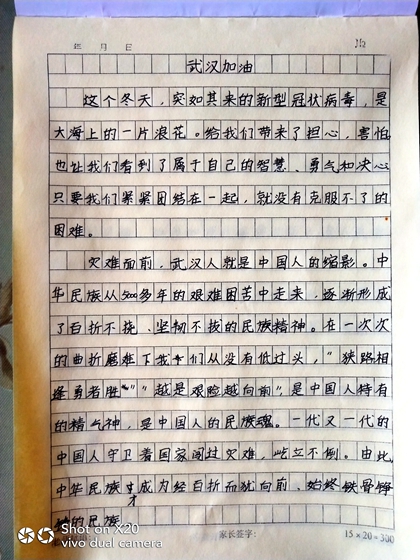 年 月 日 №
武汉加油
这个冬天，突如其来的新型冠状病毒，是
大海上的一片浪花。给我们带来了担心，害怕
也让我们看到了属于自己的智慧、勇气和决心
只要我们紧紧团结在一起，就没有克服不了的
困难。
灾难面前，武汉人就是中国人的缩影。中
华民族从5000多年的艰难困苦中走来，逐渐形成
了百折不挠、坚韧不拔的民族精神。在一次次
的曲折磨难下我们从没有低过头，"狭路相
逢勇者胜""越是艰险越向前"是中国人特有
的精气神，是中国人的民族魂。一代又一代的
中国人守卫着国家闯过灾难，屹立不倒。由此
中华民族才成为经百折而犹向前、始终铁骨铮
铮的民族
家长签字： 15×20=300
Shot on X20
vivo dual camera